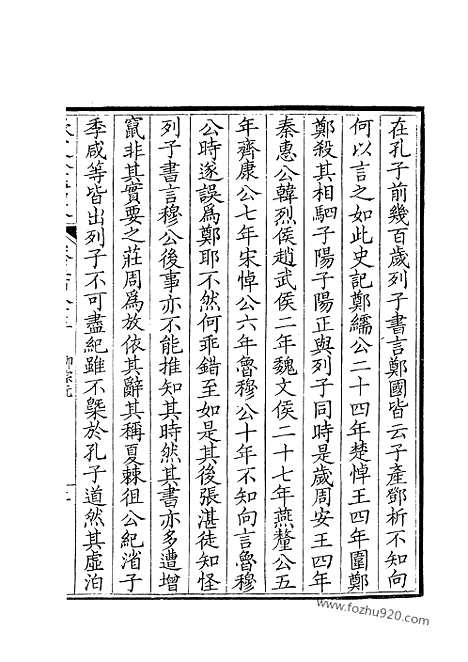 在孔子前幾百歲列子書言鄭國皆云子產鄧析不知向
何以言之如此史記鄭繻公二十四年楚悼王四年圍鄭
鄭殺其相駟子陽子陽正與列子同時是歲周安王四年
秦惠公韓烈侯趙武侯二年魏文侯二十七年燕釐公五
年齊康公七年宋悼公六年魯穆公十年不知向言魯穆
公時遂誤爲鄭耶不然何乖錯至如是其後張湛徒知怪
列子書言穆公後事亦不能推知其時然其書亦多遭增
竄非其實要之莊周爲放依其辭其稱夏棘徂公紀渻子
季咸等皆出列子不可盡紀雖不槩於孔子道然其虛泊
柳宗元
www.fozhu920.com